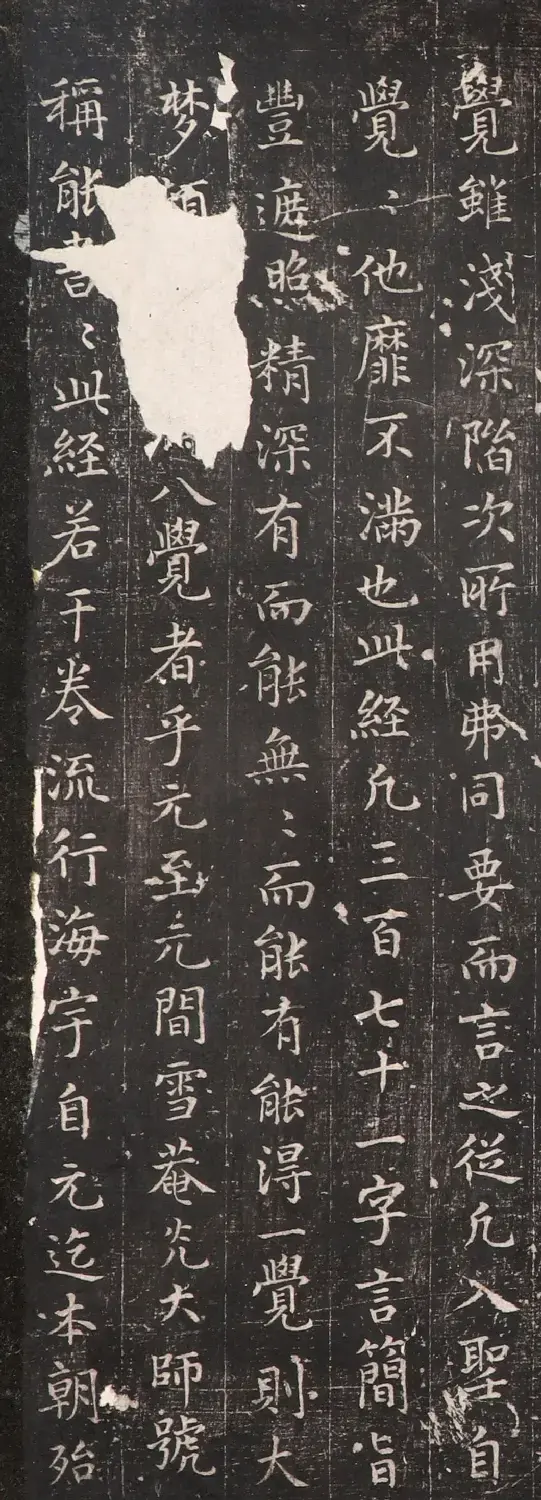 覺雖淺深階次所用弗同要而言之從凡入聖自
覺〻他靡不滿也此經凡三百七十一字言簡旨
豐遮照精深有而能無〻而能有能得一覺則大
梦八覺者乎元至元間雪菴光大師號
稱能書〻此経若干卷流行海宇自元迄本朝殆